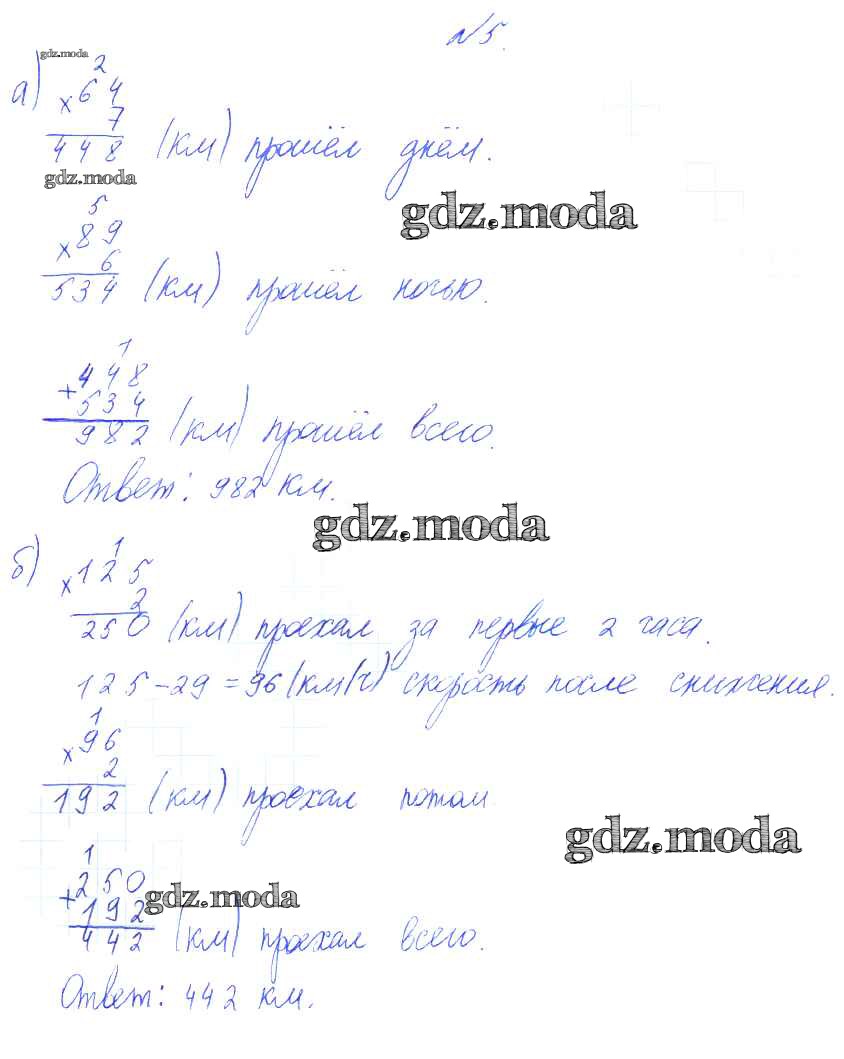 №5.
gdz.moda
а)
2
× 64
7
448 (км) прошёл днём.
gdz.moda
gdz.moda
5
× 89
6
534 (км) прошёл ночью.
1
+ 448
534
982 (км) прошёл всего.
Ответ: 982 км.
gdz.moda
б)
1
× 125
2
250 (км) проехал за первые 2 часа.
125 - 29 = 96 (км/ч) скорость после снижения.
1
× 96
2
192 (км) проехал потом
gdz.moda
1
+ 250
gdz.moda
192
442 (км) проехал всего.
Ответ: 442 км.